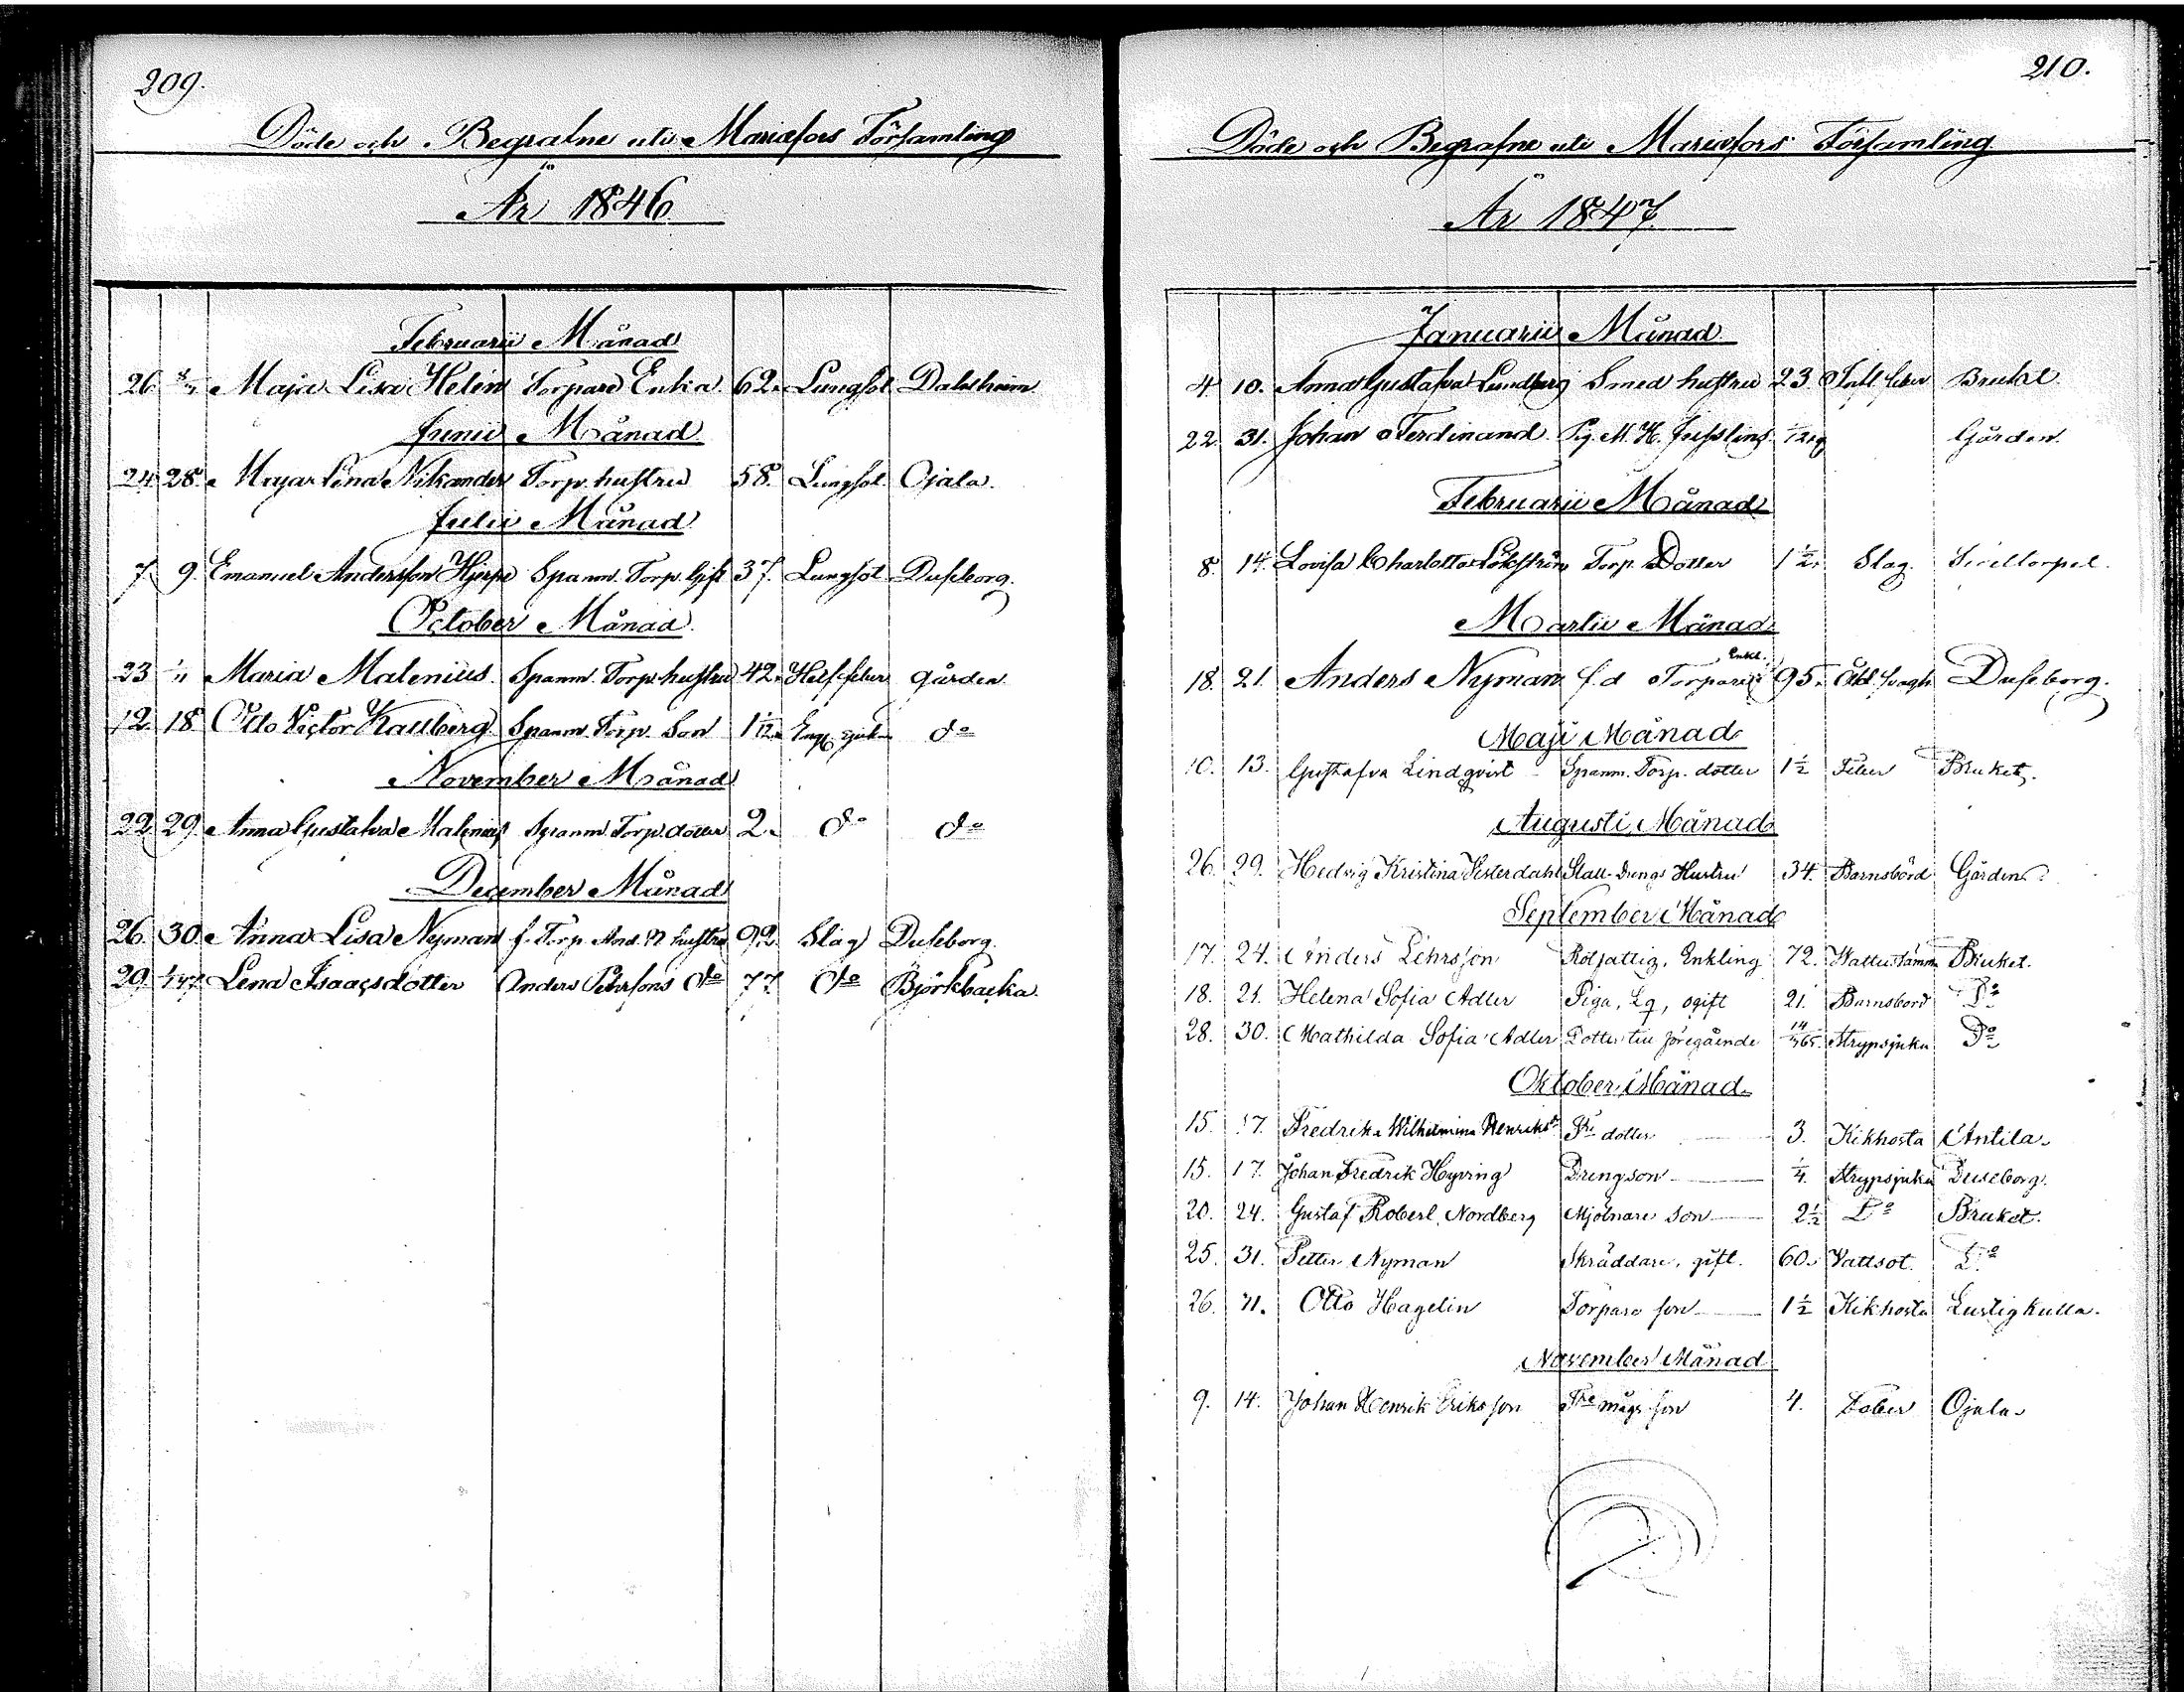 209.
Döde och Begrafne uti Mariæfors Församling
År 1846
Februarii Månad
26. Maja Lisa Helin Torpare Enka. 62. Lungsot Dalsheim
Junii Månad
24 28. Maja Lena Nikander Torp. hustru 58. Lungsot Ojala.
Julii Månad
7 9. Emanuel Andersson Hjerpe Spanm. Torp. Gift 37. Lungsot Duseborg.
October Månad.
23 1/11 Maria Malenius. Spanm. Torp. hustru 42. gården
12. 18 Otto Victor Kallberg Spanm. Torp. Son 1 1/12 do
November Månad
22. 29. Anna Gustafva Malenius Spanm. Torp. dotter 2. do do
December Månad
26. 30. Anna Lisa Nyman f. Torp. And. N. hustru 92. Slag Duseborg.
29. 1/1 47. Lena Isaacsdotter Anders Pehrsons do 77 do Björkbacka.
210.
Döde och Begrafne uti Mariæfors Församling
År 1847.
Januarii Månad
4. 10. Anna Gustafva Lundberg Smed hustru 23. feber Bruket.
22. 31. Johan Ferdinand Pig. M. H. Gården.
Februarii Månad
8. 14. Lovisa Charlotta Torp. Dotter 1 1/2. Slag.
Martii Månad
18. 21. Anders Nyman f.d Torpare Enkl. 95. Åld. svagh Duseborg.
Maji Månad
10. 13. Gustafva Lindqvist Spanm. Torp. dotter 1 1/2 Feber Bruket.
Augusti Månad
26. 29. Hedvig Kristina Vesterdahl Stall-Drengs Hustru 34. Barnsbörd Gården.
September Månad
17. 24. Anders Pehrsson Rotfattig, Enkling 72. Bruket.
18. 21. Helena Sofia Adler Piga, Lg, ogift 21. Barnsbörd Do
28. 30. Mathilda Sofia Adler Dotter till föregående 14/365. Strypsjuka Do
Oktober Månad
15. 17. Fredrika Wilhelmina Henriksd. Tre dotter 3. Kikhosta Antila.
15. 17. Johan Fredrik Hyving Drengson 1/4. Strypsjuka Duseborg.
20. 24. Gustaf Robert Nordberg Mjölnare son 2 1/2 Do Bruket.
25. 31. Petter Nyman Skräddare, gift. 60. Vattsot. Do
26. 31. Otto Hagelin Torpare son 1 1/2 Kikhosta Lustigkulla.
November Månad
9. 14. Johan Henrik Eriksson Tre mågs son 4. Feber Ojala.